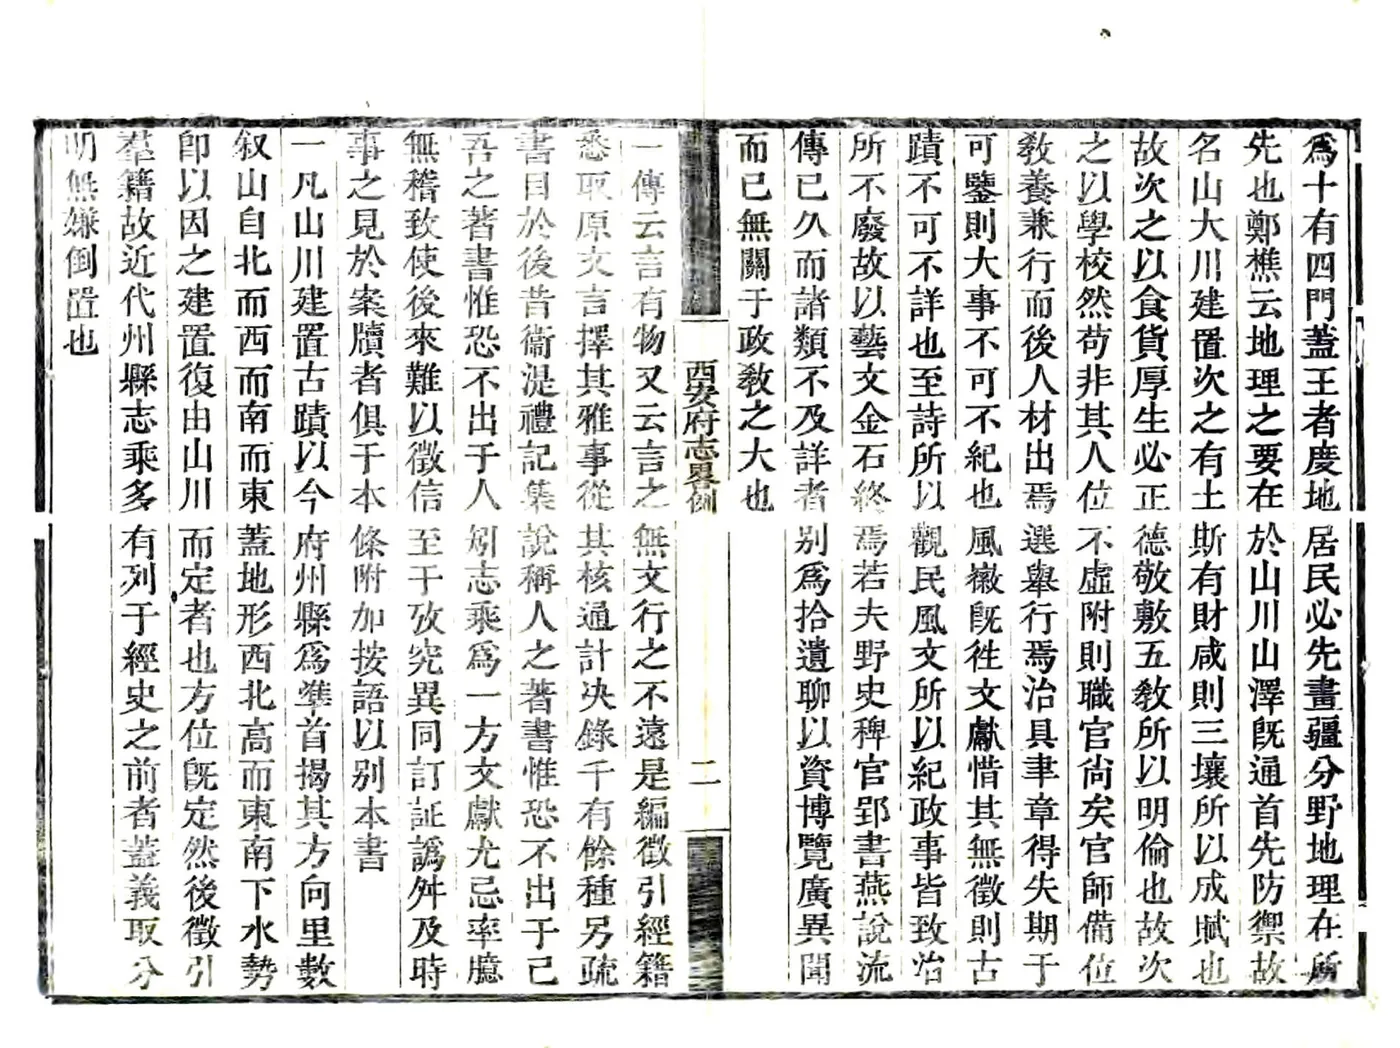 爲十有四門蓋王者度地居民必先畫疆分野地理在所
先也鄭樵云地理之要在於山川山澤旣通首先防禦故
名山大川建置次之有土斯有財咸則三壤所以成賦也
故次之以食貨厚生必正德敬敷五敎所以明倫也故次
之以學校然苟非其人位不虛附則職官尙矣官師備位
敎養兼行而後人材出焉選舉行焉治具聿章得失期于
可鑒則大事不可不紀也風徽旣徃文獻惜其無徵則古
蹟不可不詳也至詩所以觀民風文所以紀政事皆致治
所不廢故以藝文金石終焉若夫野史稗官郢書燕說流
傳已久而諸類不及詳者別爲拾遺聊以資博覽廣異聞
而已無關于政敎之大也
西安府志畧例
二
一傳云言有物又云言之無文行之不遠是編徵引經籍
悉取原文言擇其雅事從其核通計決錄千有餘種另疏
書目於後昔衞湜禮記集說稱人之著書惟恐不出于己
吾之著書惟恐不出于人矧志乘爲一方文獻尤忌率臆
無稽致使後來難以徵信至于攷究異同訂証譌舛及時
事之見於案牘者俱于本條附加按語以別本書
一凡山川建置古蹟以今府州縣爲準首揭其方向里數
叙山自北而西而南而東蓋地形西北高而東南下水勢
卽以因之建置復由山川而定者也方位旣定然後徵引
羣籍故近代州縣志乘多有列于經史之前者蓋義取分
明無嫌倒置也